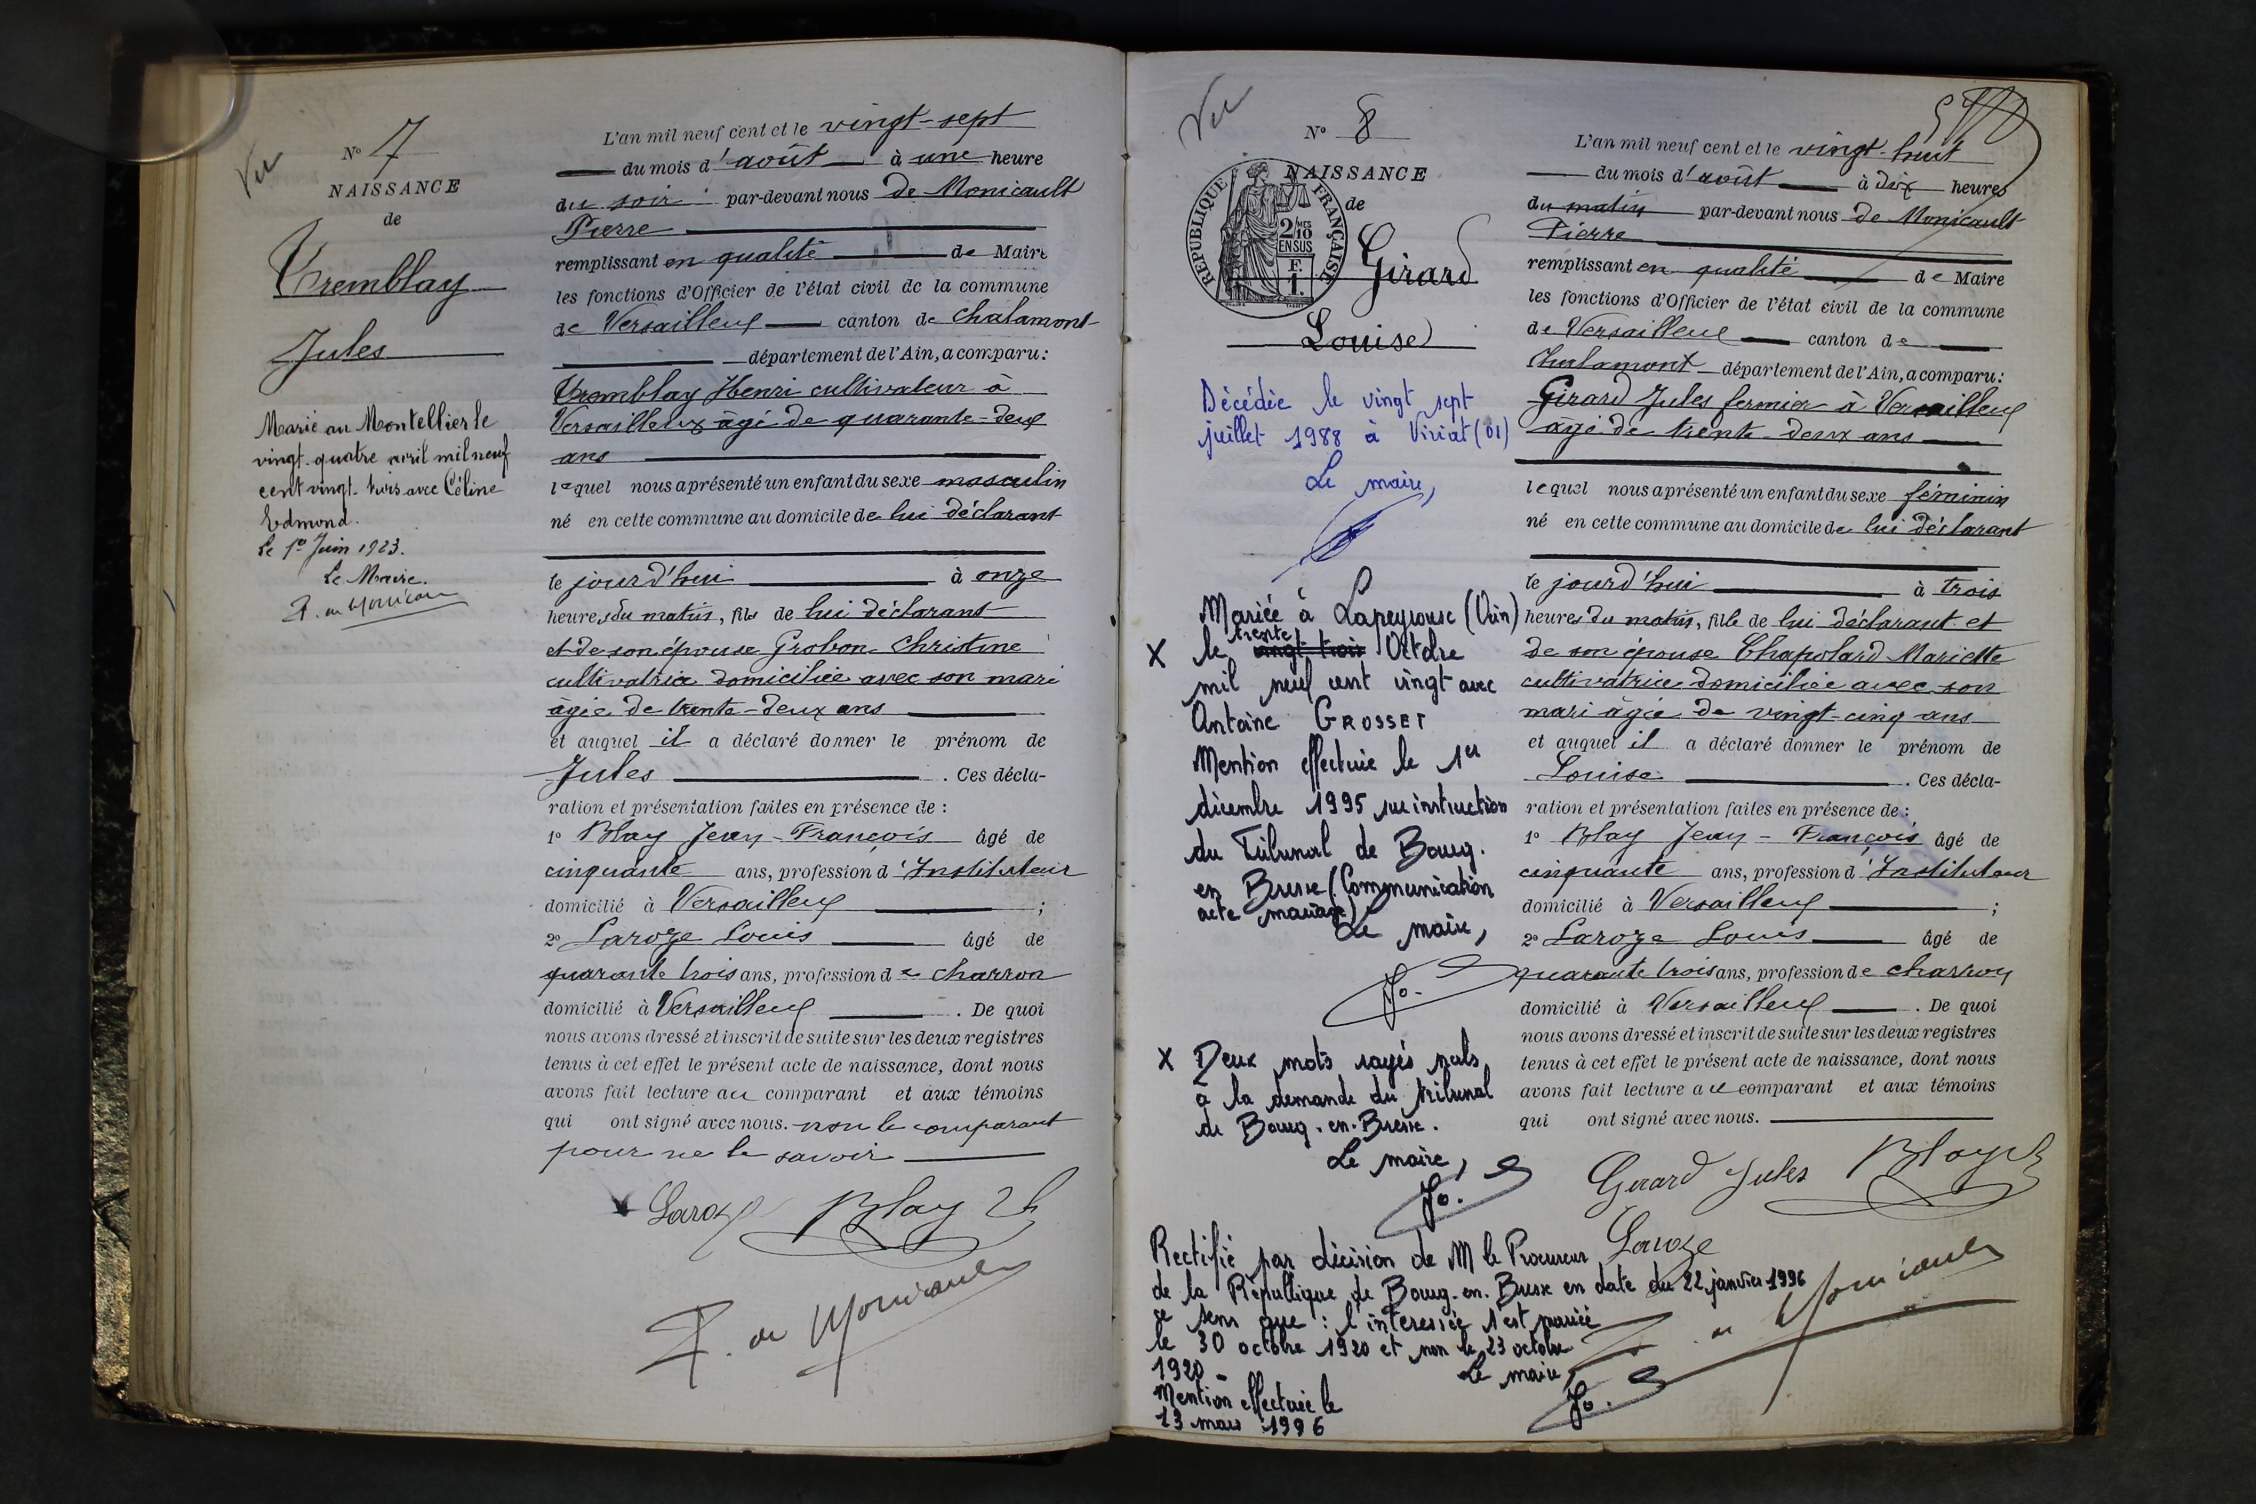 Vu
Nº 7
NAISSANCE
de
Tremblay
Jules
Marié au Montellier le
vingt-quatre avril mil neuf
cent vingt-trois avec Céline
Edmond.
Le 1er Juin 1923.
Le Maire.
P. de Monicault
L'an mil neuf cent et le vingt-sept
du mois d'août à une heure
du soir par-devant nous de Monicault
Pierre
remplissant en qualité de Maire
les fonctions d'Officier de l'état civil de la commune
de Versailleux canton de Chalamont
département de l'Ain, a comparu :
Tremblay Henri cultivateur à
Versailleux âgé de quarante-deux
ans
lequel nous a présenté un enfant du sexe masculin
né en cette commune au domicile de lui déclarant
le jourd'hui à onze
heures du matin, fils de lui déclarant
et de son épouse Grobon Christine
cultivatrice domiciliée avec son mari
âgée de trente-deux ans
et auquel il a déclaré donner le prénom de
Jules . Ces décla-
ration et présentation faites en présence de :
1º Blay Jean-François âgé de
cinquante ans, profession d'Instituteur
domicilié à Versailleux ;
2º Laroze Louis âgé de
quarante trois ans, profession de charron
domicilié à Versailleux . De quoi
nous avons dressé et inscrit de suite sur les deux registres
tenus à cet effet le présent acte de naissance, dont nous
avons fait lecture au comparant et aux témoins
qui ont signé avec nous. non le comparant
pour ne le savoir
Laroze Blay
P. de Monicault
Vu
Nº 8
NAISSANCE
de
RÉPUBLIQUE FRANÇAISE
2/10
MES
EN SUS
F.
1.
Girard
Louise
Décédée le vingt sept
juillet 1988 à Viriat (01)
Le maire,
Mariée à Lapeyrouse (Ain)
X le trente vingt trois Octobre
mil neuf cent vingt avec
Antoine GROSSET
Mention effectuée le 1er
décembre 1995 sur instruction
du Tribunal de Bourg.
en Bresse (Communication
acte mariage)
Le maire,
X Deux mots rayés nuls
à la demande du tribunal
de Bourg-en-Bresse.
Le maire,
Rectifié par décision de M le Procureur
de la République de Bourg-en-Bresse en date du 22 janvier 1996
ce sens que : l'intéressée s'est mariée
le 30 octobre 1920 et non le 23 octobre
1920.
Le maire,
Mention effectuée le
13 mars 1996
L'an mil neuf cent et le vingt-huit
du mois d'août à dix heures
du matin par-devant nous de Monicault
Pierre
remplissant en qualité de Maire
les fonctions d'Officier de l'état civil de la commune
de Versailleux canton de
Chalamont département de l'Ain, a comparu :
Girard Jules fermier à Versailleux
âgé de trente-deux ans
lequel nous a présenté un enfant du sexe féminin
né en cette commune au domicile de lui déclarant
le jourd'hui à trois
heures du matin, fille de lui déclarant et
de son épouse Chapolard Mariette
cultivatrice domiciliée avec son
mari âgée de vingt-cinq ans
et auquel il a déclaré donner le prénom de
Louise . Ces décla-
ration et présentation faites en présence de :
1º Blay Jean-François âgé de
cinquante ans, profession d'Instituteur
domicilié à Versailleux ;
2º Laroze Louis âgé de
quarante trois ans, profession de charron
domicilié à Versailleux . De quoi
nous avons dressé et inscrit de suite sur les deux registres
tenus à cet effet le présent acte de naissance, dont nous
avons fait lecture au comparant et aux témoins
qui ont signé avec nous.
Girard Jules Blay
Laroze
P. de Monicault